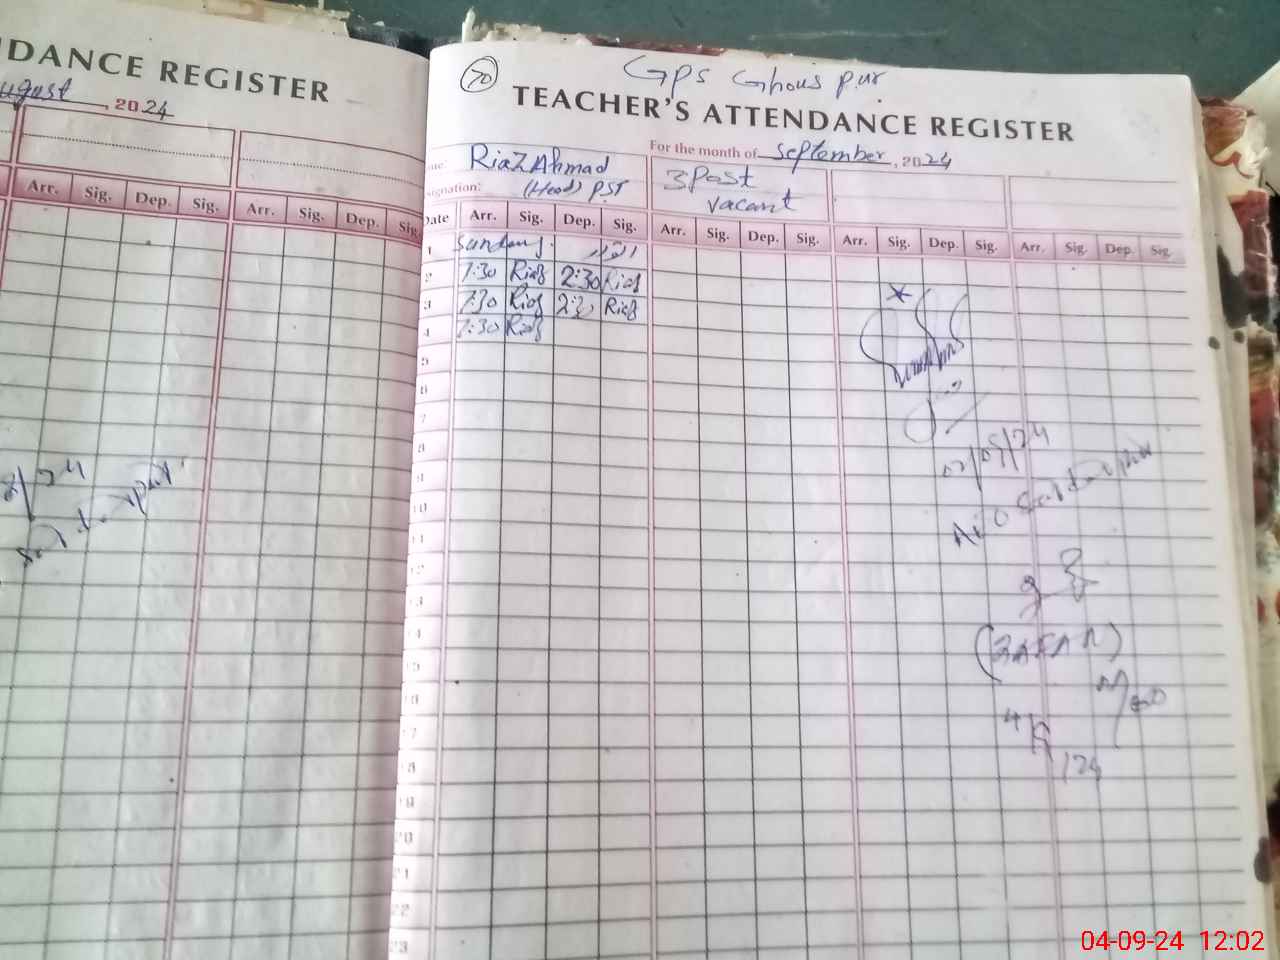 DANCE REGISTER
ugust, 2024
Arr. Sig. Dep. Sig. Arr. Sig. Dep. Sig.
/24
70
GPS Ghous pur
TEACHER'S ATTENDANCE REGISTER
For the month of September, 2024
Riaz Ahmad
signation: (Head) PST
3 Post
vacant
Date Arr. Sig. Dep. Sig. Arr. Sig. Dep. Sig. Arr. Sig. Dep. Sig. Arr. Sig. Dep. Sig.
1 Sunday اتوار
2 7:30 Riaz 2:30 Riaz
3 7:30 Riaz 2:30 Riaz
4 7:30 Riaz
5
6
7
8
9
10
11
12
13
14
15
16
17
18
19
20
21
22
23
02/09/24
(ZAFAR)
4/9/24
04-09-24 12:02